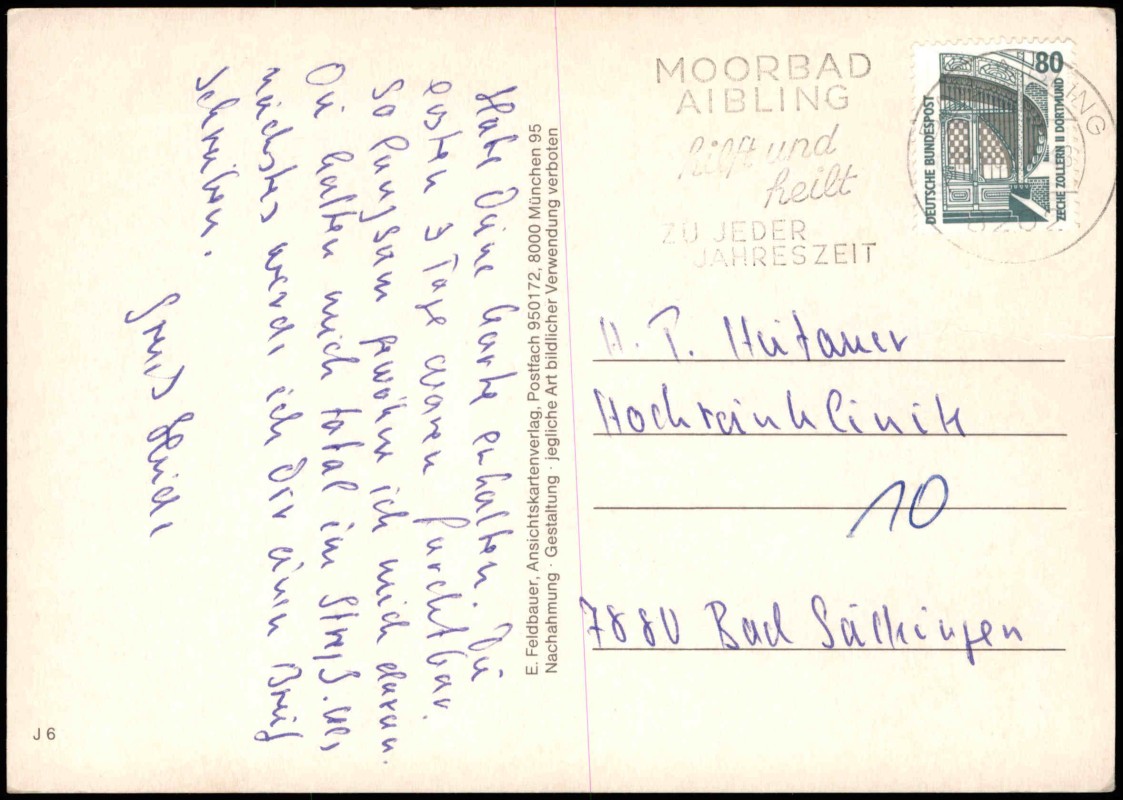 Habe Deine Karte erhalten. Die
ersten 3 Tage waren furchtbar.
So langsam gewöhn ich mich daran.
Die halten mich total im Streß. Als
nächstes werde ich Dir einen Brief
schreiben.
Gruß Heidi
E. Feldbauer, Ansichtskartenverlag, Postfach 950172, 8000 München 95
Nachahmung · Gestaltung · jegliche Art bildlicher Verwendung verboten
J 6
MOORBAD
AIBLING
hilft und
heilt
ZU JEDER
JAHRESZEIT
80
DEUTSCHE BUNDESPOST
ZECHE ZOLLERN II DORTMUND
H. P.
Hochrheinklinik
10
7880 Bad Säckingen